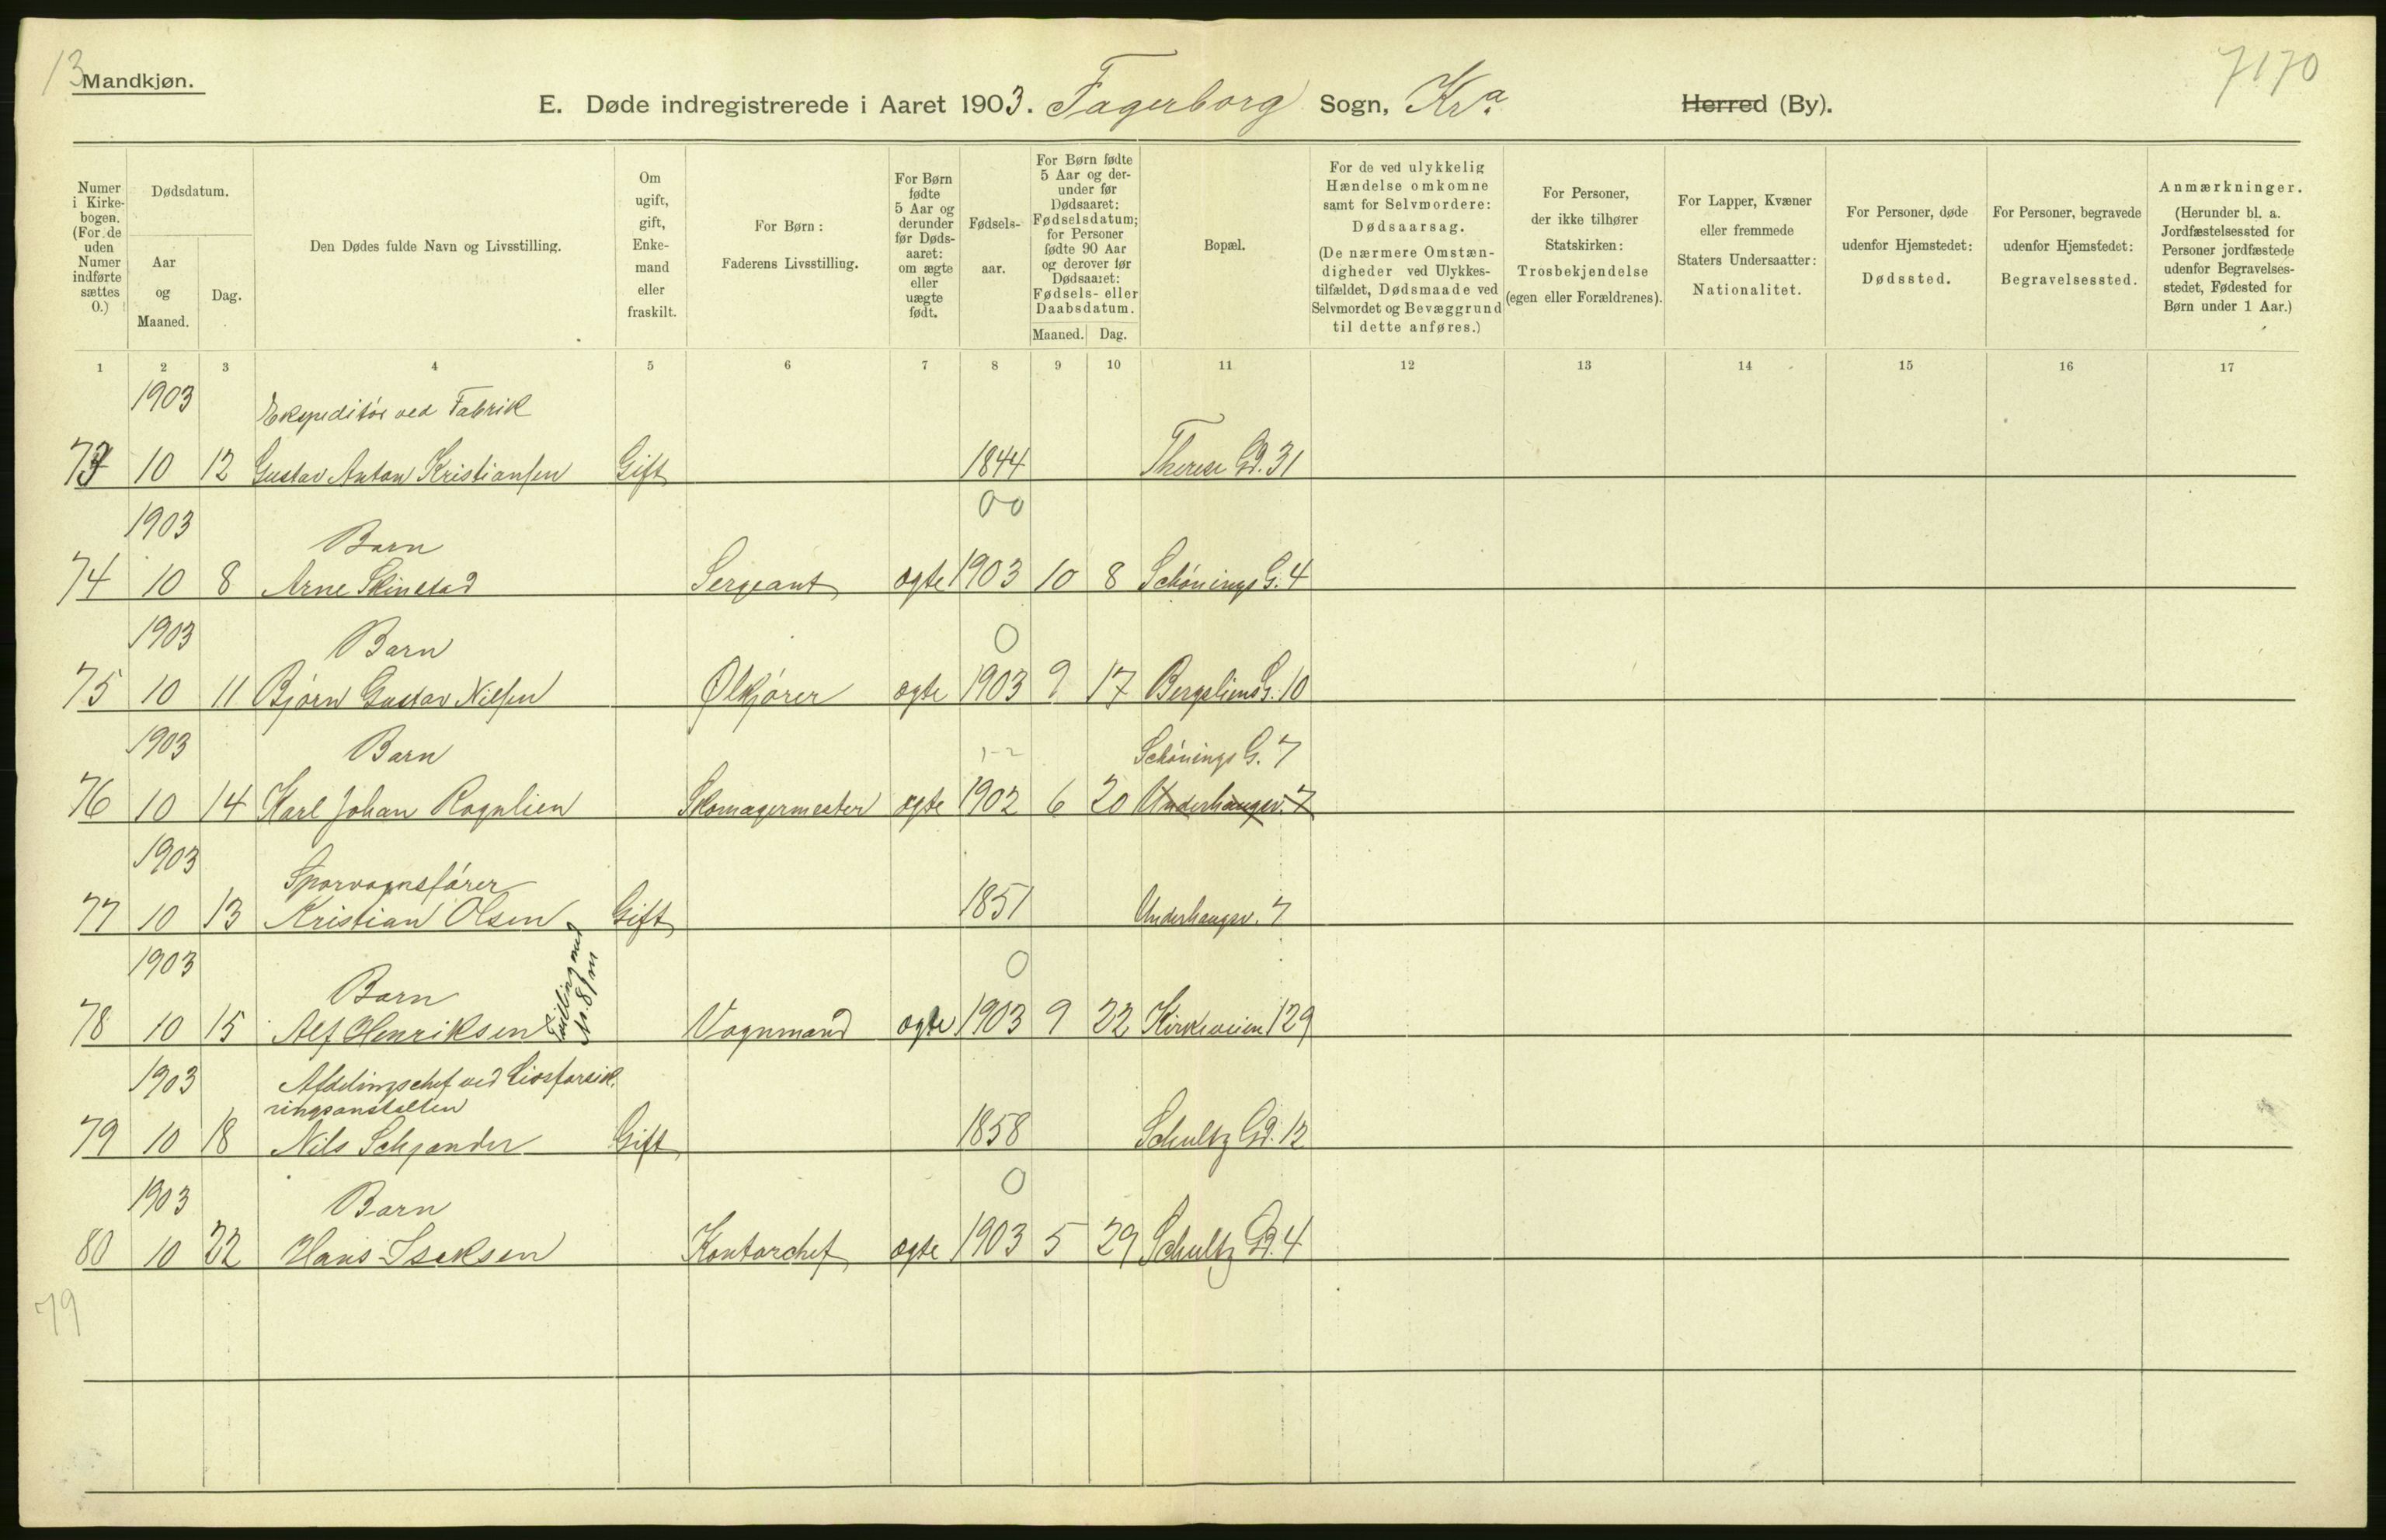 13
Mandkjøn.
7170
E. Døde indregistrerede i Aaret 1903. Fagerborg Sogn, Kra. Herred (By).
Numer i Kirkebogen. (For de uden Numer indførte sættes 0.)
Dødsdatum.
Aar og Maaned.
Dag.
Den Dødes fulde Navn og Livsstilling.
Om ugift, gift, Enkemand eller fraskilt.
For Børn: Faderens Livsstilling.
For Børn fødte 5 Aar og derunder før Dødsaaret: om ægte eller uægte født.
Fødselsaar.
For Børn fødte 5 Aar og derunder før Dødsaaret: Fødselsdatum; for Personer fødte 90 Aar og derover før Dødsaaret: Fødsels- eller Daabsdatum.
Maaned. Dag.
Bopæl.
For de ved ulykkelig Hændelse omkomne samt for Selvmordere: Dødsaarsag. (De nærmere Omstændigheder ved Ulykkestilfældet, Dødsmaade ved Selvmordet og Bevæggrund til dette anføres.)
For Personer, der ikke tilhører Statskirken: Trosbekjendelse (egen eller Forældrenes).
For Lapper, Kvæner eller fremmede Staters Undersaatter: Nationalitet.
For Personer, døde udenfor Hjemstedet: Dødssted.
For Personer, begravede udenfor Hjemstedet: Begravelsessted.
Anmærkninger. (Herunder bl. a. Jordfæstelsessted for Personer jordfæstede udenfor Begravelsesstedet, Fødested for Børn under 1 Aar.)
1 2 3 4 5 6 7 8 9 10 11 12 13 14 15 16 17
1903 Ekspeditør ved Fabrik
73 10 12 Gustav Anton Kristiansen Gift 1844 Therese Gd. 31
1903 Barn 00
74 10 8 Arne Skinstad Sergeant ægte 1903 10 8 Schönings G. 4
1903 Barn 0
75 10 11 Bjørn Gustav Nilsen Ølkjører ægte 1903 9 17 Bergsliens G. 10
1903 Barn 1-2 Schönings G. 7
76 10 14 Karl Johan Rognlien Skomagermester ægte 1902 6 20 Underhaugsv. 7
1903 Sporvognsfører
77 10 13 Kristian Olsen Gift 1851 Underhaugsv. 7
1903 Barn 0
78 10 15 Alf Henriksen Tvilling med No. 81 m Vognmand ægte 1903 9 22 Kirkeveien 129
1903 Afdelingschef ved Livsforsik
ringsanstalten
79 10 18 Nils Schjander Gift 1858 Schultz Gd. 12
1903 Barn 0
80 10 22 Hans Isaksen Kontorchef ægte 1903 5 29 Schultz Gd. 4
79